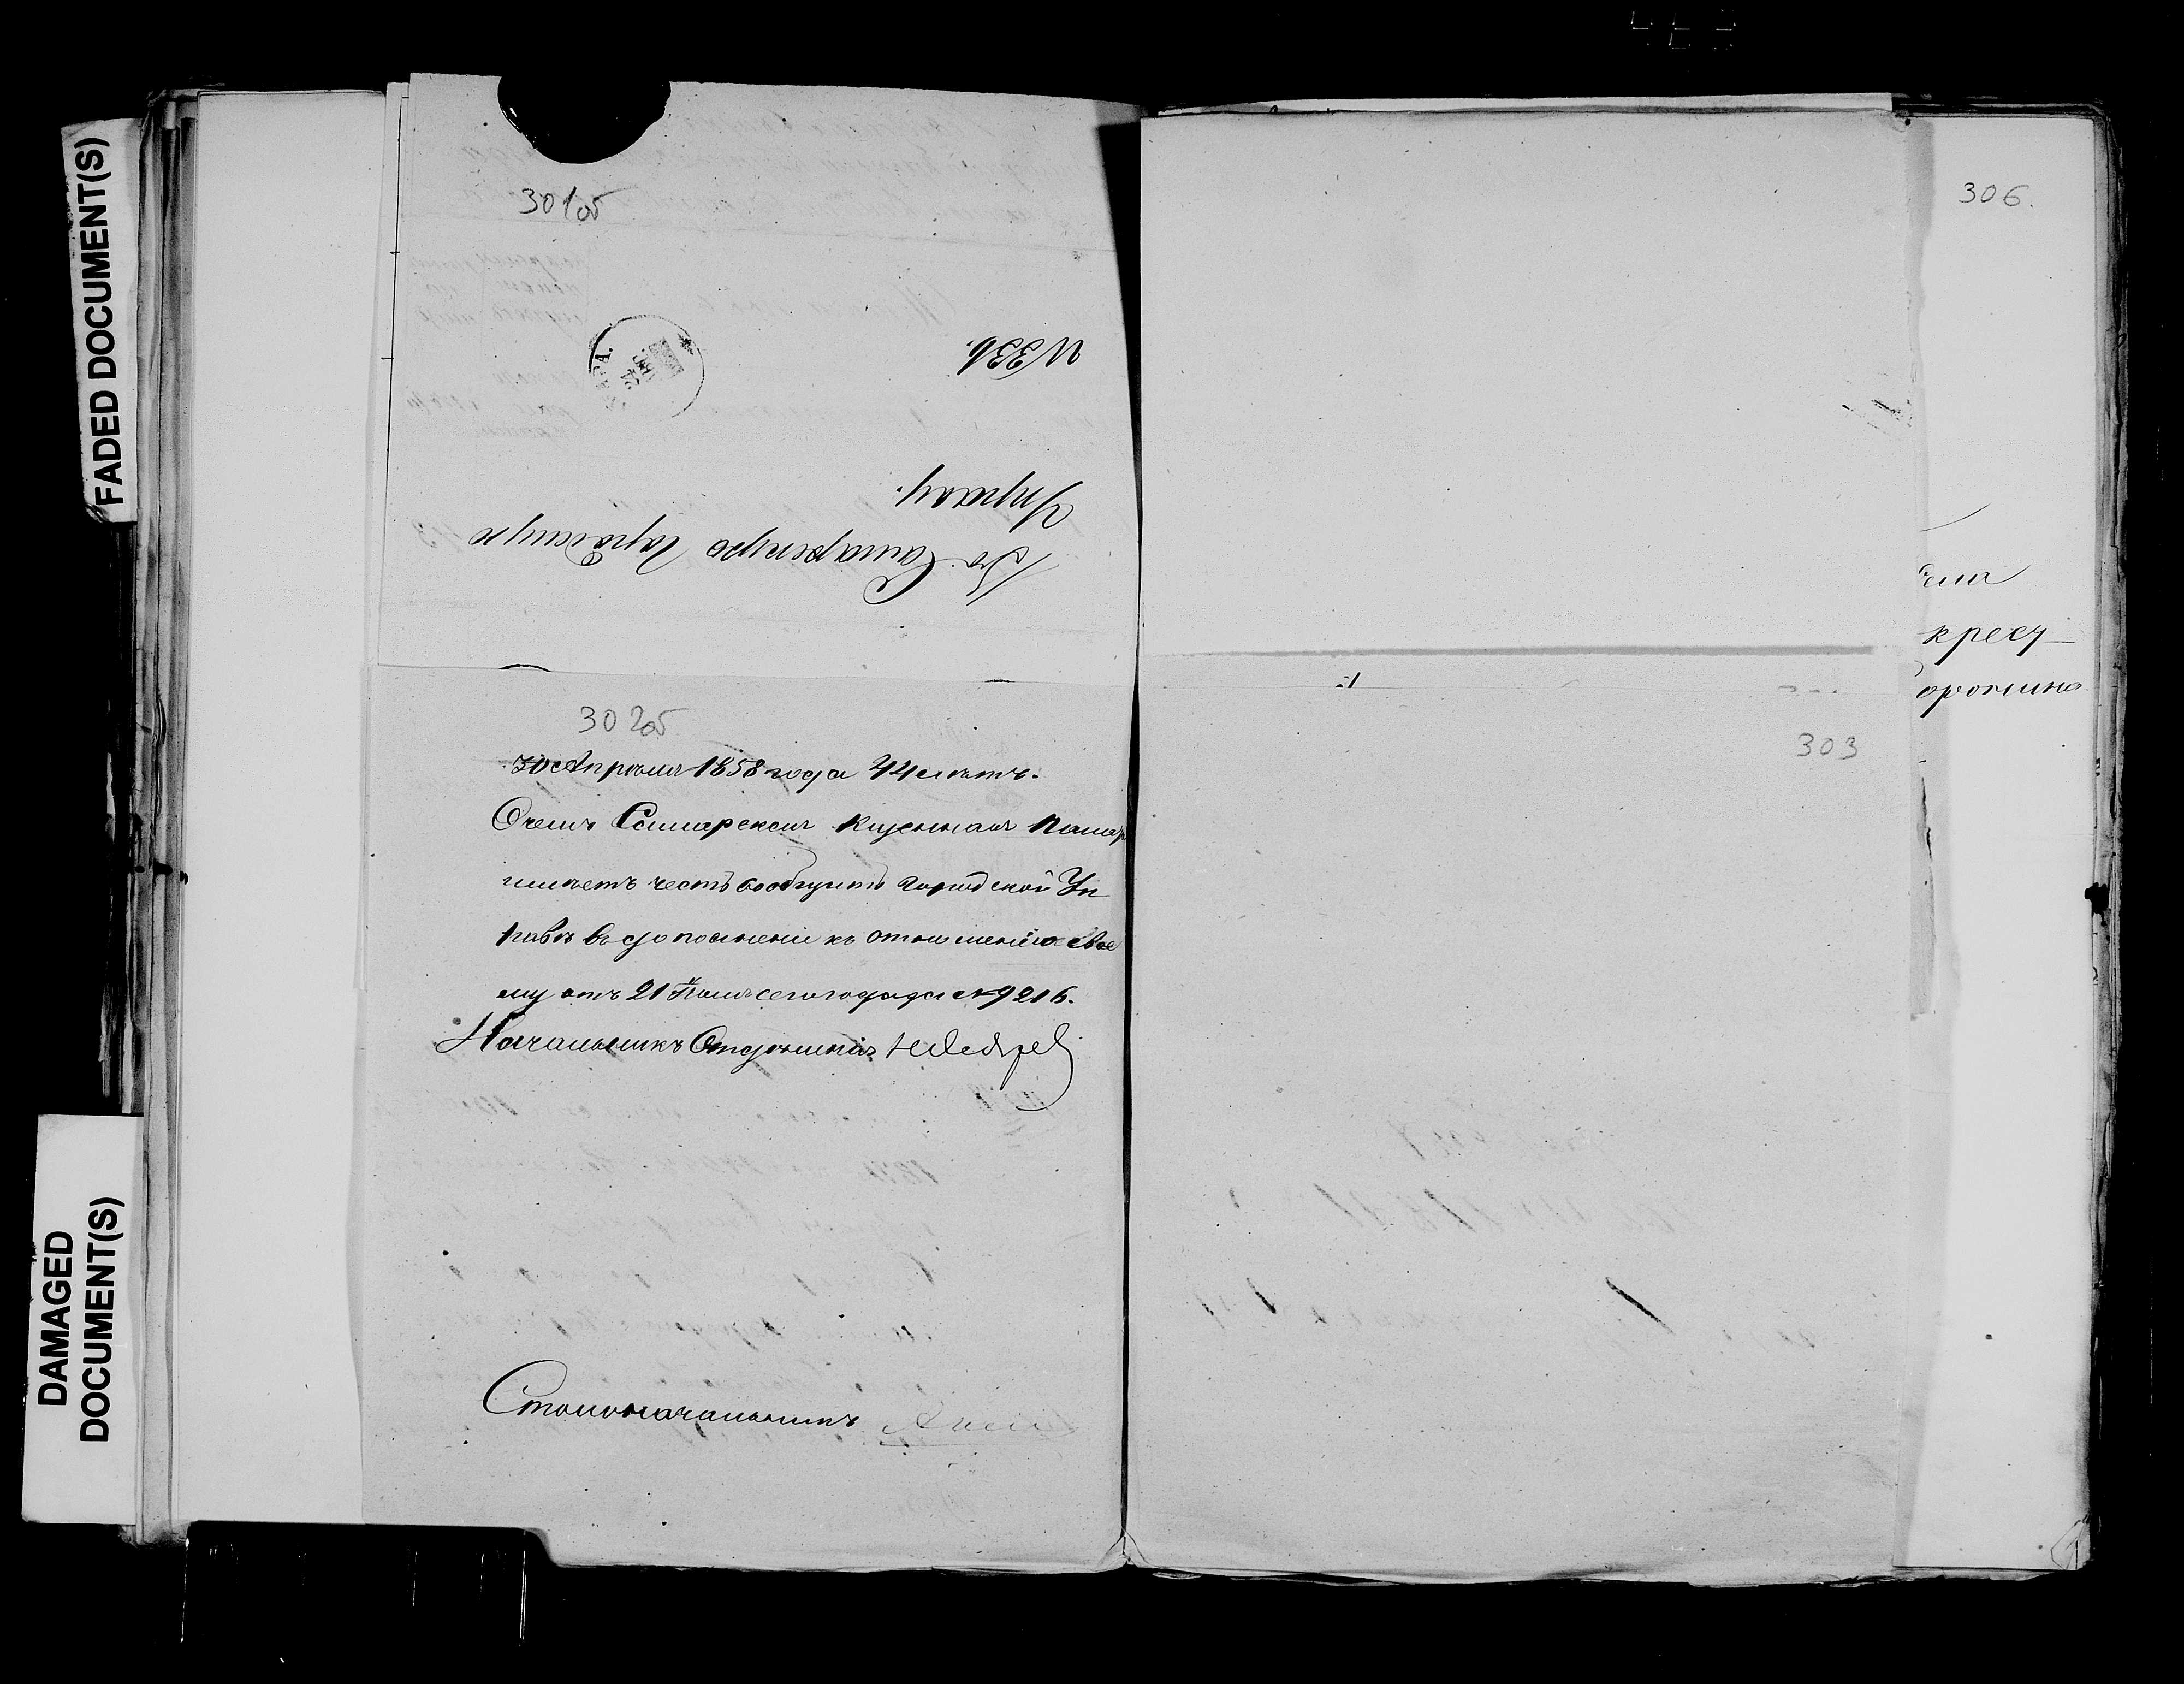 FADED DOCUMENT(S)
DAMAGED
DOCUMENT(S)
301об
Въ Самарскую Городскую
Управу.
N 336.
302об
30 Апрѣля 1858 года 44 лѣтъ.
Очемъ Самарская Казенная Палат
имѣетъ честь сообщить Городской Уп
равѣ въ дополненіе къ отношенію свое
му отъ 21 Іюля сего года за № 9216.
Начальникъ Отдѣленія
Столоначальникъ
303
306.
крест